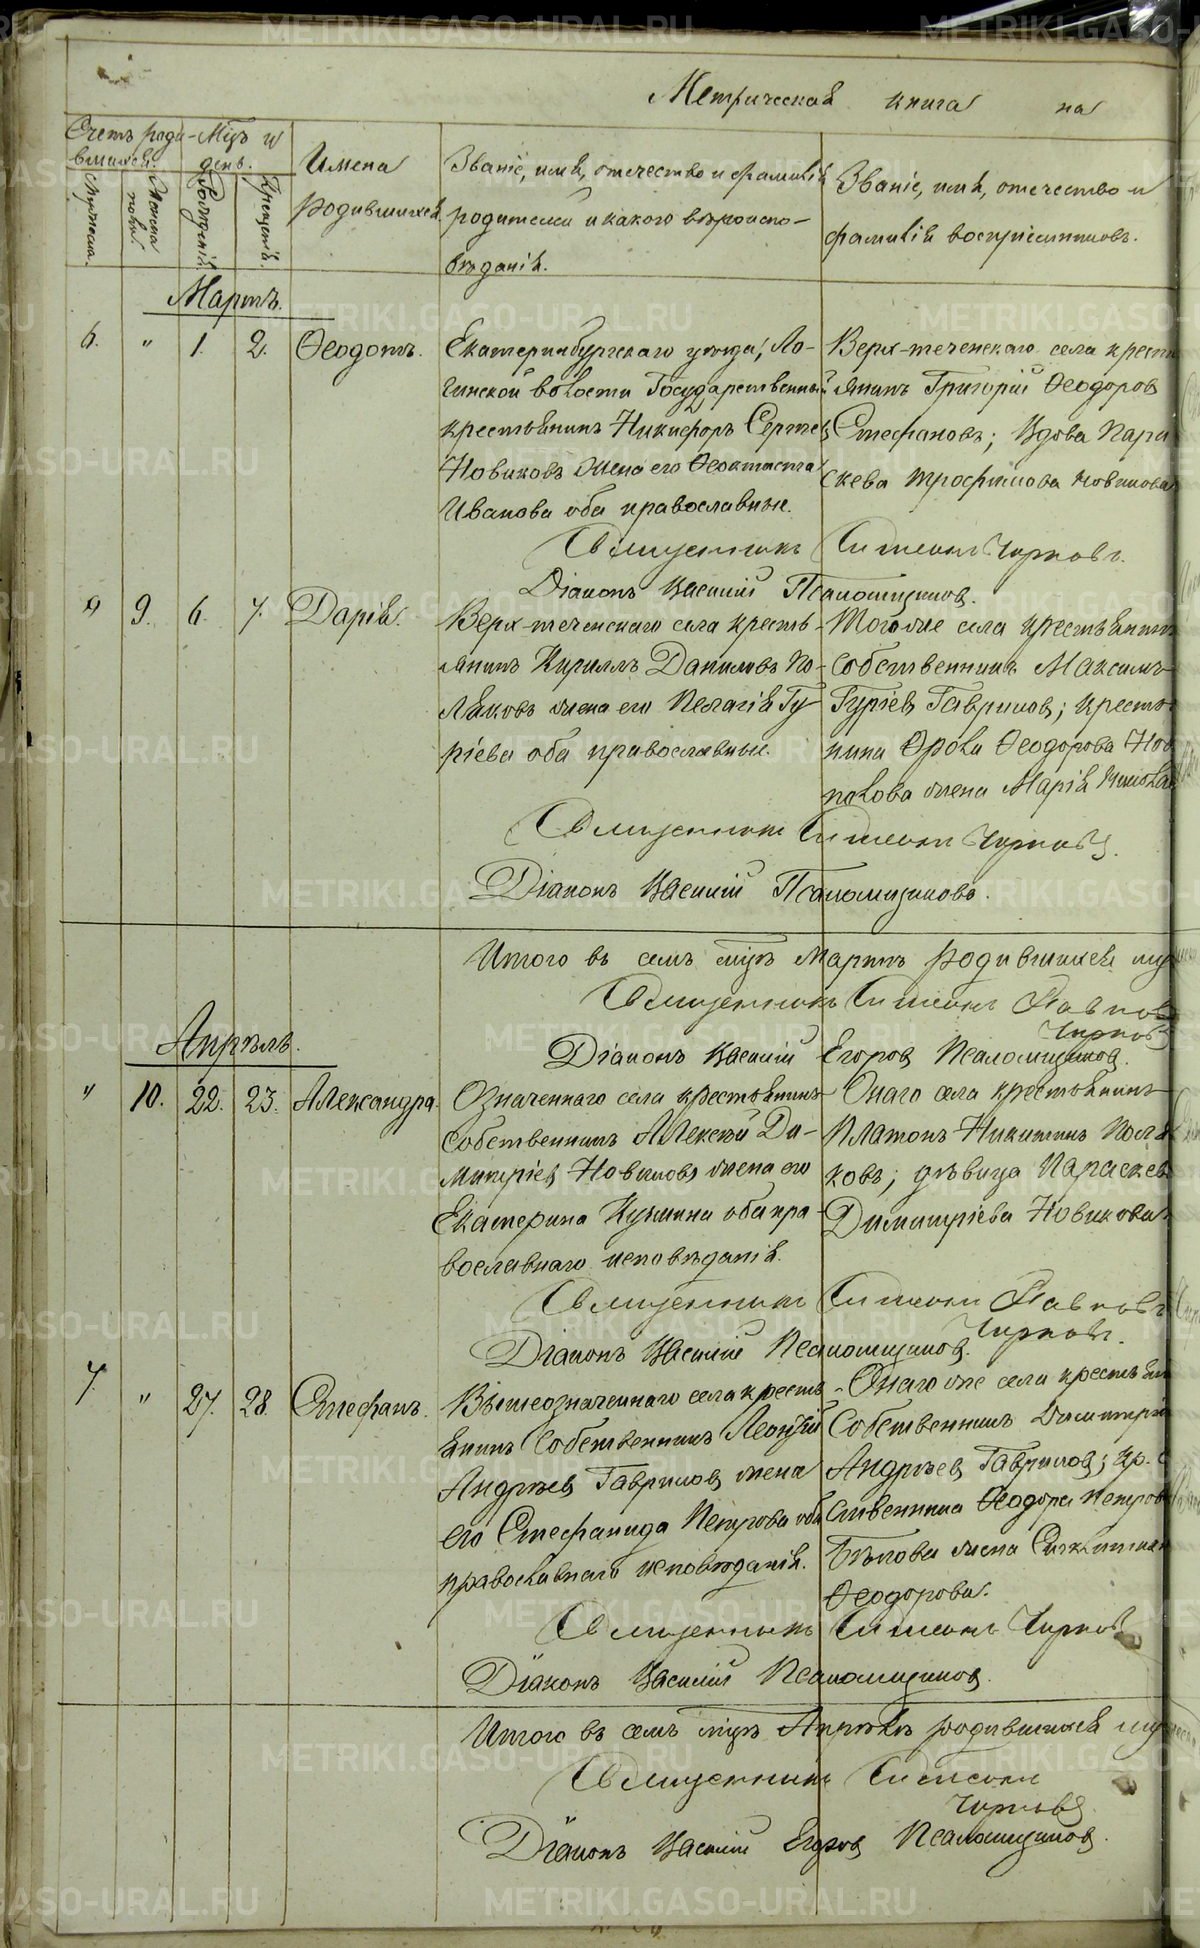 Метрическая книга на
Счетъ роди- Мцъ и
вшихся. день.
Имена
родившихся
Званіе, имя, отчество и фамилія
родителей и какого вѣроиспо-
вѣданія.
Званіе, имя, отчество и
фамилія воспріемниковъ.
Мужеска.
Женска
Рожденія
Крещенія.
Мартъ.
6. " 1. 2. Ѳеодотъ.
Екатеринбургскаго уѣзда,
волости Государственный
крестьянинъ Никифоръ
Новиковъ жена его Ѳеоктиста
Иванова оба православные.
Верх-теченскаго села
Григорій Ѳеодоров
Стефановъ; Вдова Пара
скева Трофимова Новикова
Священникъ Симеонъ Чирковъ.
Діаконъ Василій Псаломщиковъ.
" 9. 6. 7. Дарія.
Верх-теченскаго села кресть-
янинъ Кириллъ Даниловъ По-
ляковъ жена его Пелагія Гу-
ріева оба православные.
Того же села крестьянинъ
собственникъ Максимъ
Гуріев Гаврилов;
Ѳрола Ѳеодорова
жена Марія
Священникъ Симеонъ Чирковъ.
Діаконъ Василій Псаломщиковъ.
Итого въ семъ мцѣ Мартѣ родившихся
Священникъ Симеонъ Павлов
Чирковъ
Діаконъ Василій Егоров Псаломщиков.
Апрѣль.
" 10. 22. 23. Александра.
Означеннаго села крестьянинъ
собственникъ Алексѣй Ди-
митріев Новиковъ жена его
Екатерина Кузмина оба пра-
вославнаго исповѣданія.
Онаго села крестьянинъ
Платонъ Никитинъ Поля
ковъ; дѣвица Параскев
Димитріева Новикова.
Священникъ Симеонъ Павловъ
Чирковъ.
Діаконъ Василій Псаломщиков.
7. " 27. 28. Стефанъ.
Вышеозначеннаго села кресть-
янинъ Собственникъ Леонтій
Андреев Гаврилов жена
его Стефанида Петрова оба
православнаго исповѣданія.
Онаго же села крестьян
Собственникъ Димитрій
Андреев Гаврилов; кр. с
ственника Ѳеодора Петров
жена
Ѳеодорова.
Священникъ Симеонъ Чирков
Діаконъ Василій Псаломщиков.
Итого въ семъ мцѣ Апрѣлѣ родившихся
Священникъ Симеонъ
Чирковъ
Діаконъ Василій Егоров Псаломщиков.